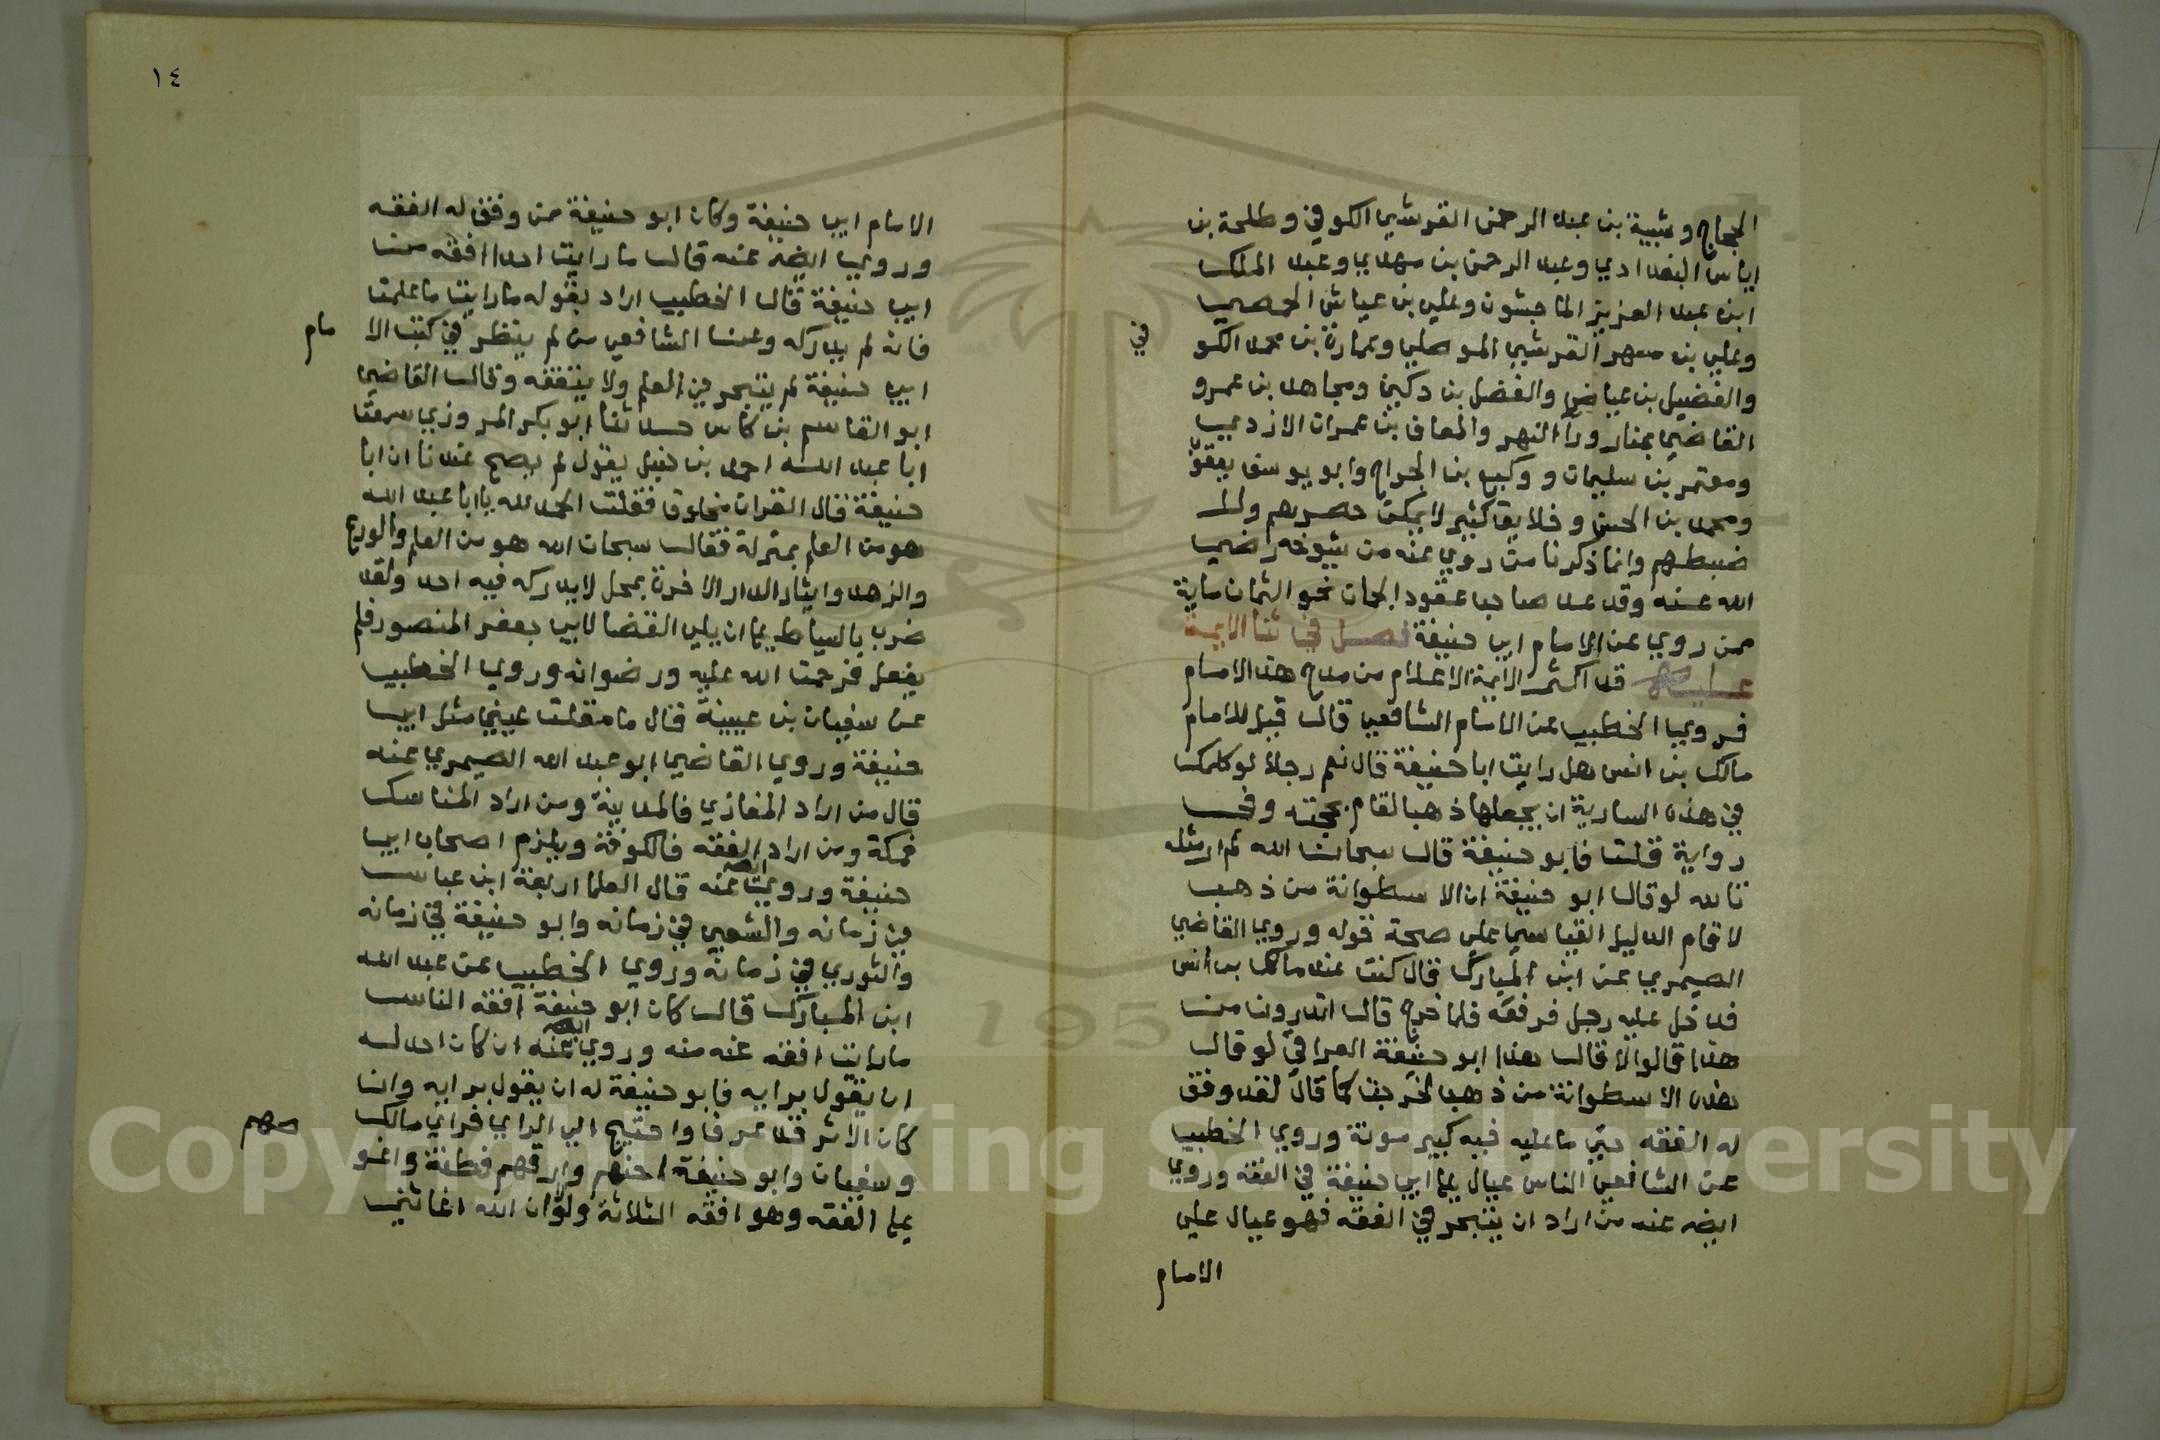 الحجاج وشيبة بن عبد الرحمن القرشي الكوفي وطلحة بن
اياس البغدادي وعبد الرحمن بن مهدي وعبد الملك
ابن عبد العزيز الماجشون وعلي بن عياش الحمصي
وعلي بن مسهر القرشي الموصلي وعمارة بن محمد الكو
في
والفضيل بن عياض والفضل بن دكين ومجاهد بن عمرو
القاضي بمنار ورا النهر والمعاف بن عمران الازدي
ومعتمر بن سليمان ووكيع بن الجراح وابو يوسف يعقوب
ومحمد بن الحسن وخلايق كثير لا يمكن حصرهم ولا
ضبطهم وانما ذكرنا من روي عنه من شيوخه رضي
الله عنه وقد عد صاحب عقود الجمان نحو الثمان ماية
ممن روي عن الامام ابي حنيفة فصل في ثنا الايمة
عليه قد اكثر الايمة الاعلام من مدح هذا الامام
فروي الخطيب عن الامام الشافعي قال قيل للامام
مالك بن انس هل رايت ابا حنيفة قال نعم رجلا لو كلمك
في هذه السارية ان يجعلها ذهبا لقام بحجته وفي
رواية قلت فابو حنيفة قال سبحان الله لم ار مثله
تالله لو قال ابو حنيفة ان الاسطوانة من ذهب
لاقام الدليل القياسي علي صحة قوله وروي القاضي
الصيمري عن ابن المبارك قال كنت عند مالك بن انس
فدخل عليه رجل فرفعه فلما خرج قال اتدرون من
هذا قالوا لا قال هذا ابو حنيفة العراقي لو قال
هذه الاسطوانة من ذهب لخرجت كما قال لقد وفق
له الفقه حتي ما عليه فيه كبير مونة وروي الخطيب
عن الشافعي الناس عيال علي ابي حنيفة في الفقه وروي
ايضه عنه من اراد ان يتبحر في الفقه فهو عيال علي
الامام
١٤
الامام ابي حنيفة وكان ابو حنيفة من وفق له الفقه
وروي ايضه عنه قال ما رايت احدا افقه من
ابي حنيفة قال الخطيب اراد بقوله ما رايت ما علمت
فانه لم يدركه وعن الشافعي من لم ينظر في كتب الا
مام
ابي حنيفة لم يتبحر في العلم ولا يتفقه وقال القاضي
ابو القاسم بن كاس حدثنا ابو بكر المروزي سمعت
ابا عبد الله احمد بن حنبل يقول لم يصح عندنا ان ابا
حنيفة قال القران مخلوق فقلت الحمد لله يا ابا عبد الله
هو من العلم بمنزلة فقال سبحان الله هو من العلم والورع
والزهد وايثار الدار الاخرة بمحل لا يدركه فيه احد ولقد
ضرب بالسياط علي ان يلي القضا لابي جعفر المنصور فلم
يفعل فرحمت الله عليه ورضوانه وروي الخطيب
عن سفيان بن عيينة قال ما مقلت عيني مثل ابي
حنيفة وروي القاضي ابو عبد الله الصيمري عنه
قال من اراد المغازي فالمدينة ومن اراد المناسك
فمكة ومن اراد الفقه فالكوفة ويلزم اصحاب ابي
حنيفة وروي ايضه عنه قال العلما اربعة ابن عباس
في زمانه والشعبي في زمانه وابو حنيفة في زمانه
والثوري في زمانه وروي الخطيب عن عبد الله
ابن المبارك قال كان ابو حنيفة افقه الناس
ما رايت افقه عنه منه وروي ايضه عنه ان كان احد له
ان يقول برايه فابو حنيفة له ان يقول برايه وان
كان الاثر قد عرف واحتيج الي الراي فراي مالك
وسفيان وابو حنيفة احنهم وارقهم فطنة واغو
صهم
علي الفقه وهو افقه الثلاثة ولو ان الله اغاثني
Copyright © King Saud University
195